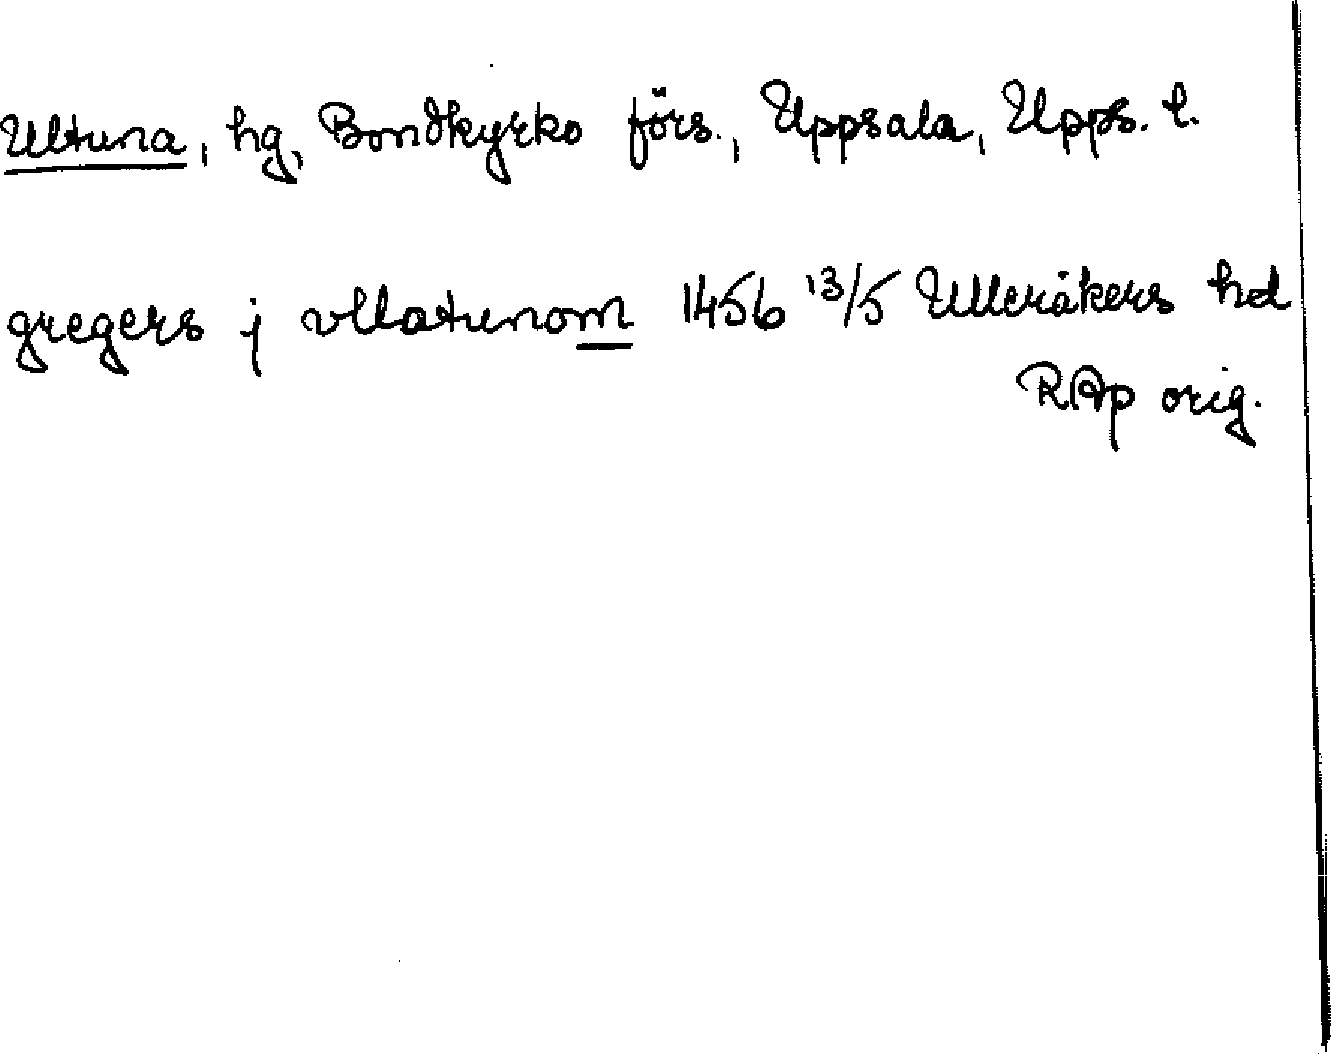 Ultuna, hg, Bondkyrko förs., Uppsala, Upps. l.
gregers j vllatunom 1456 13/5 Ulleråkers hd
RAp orig.